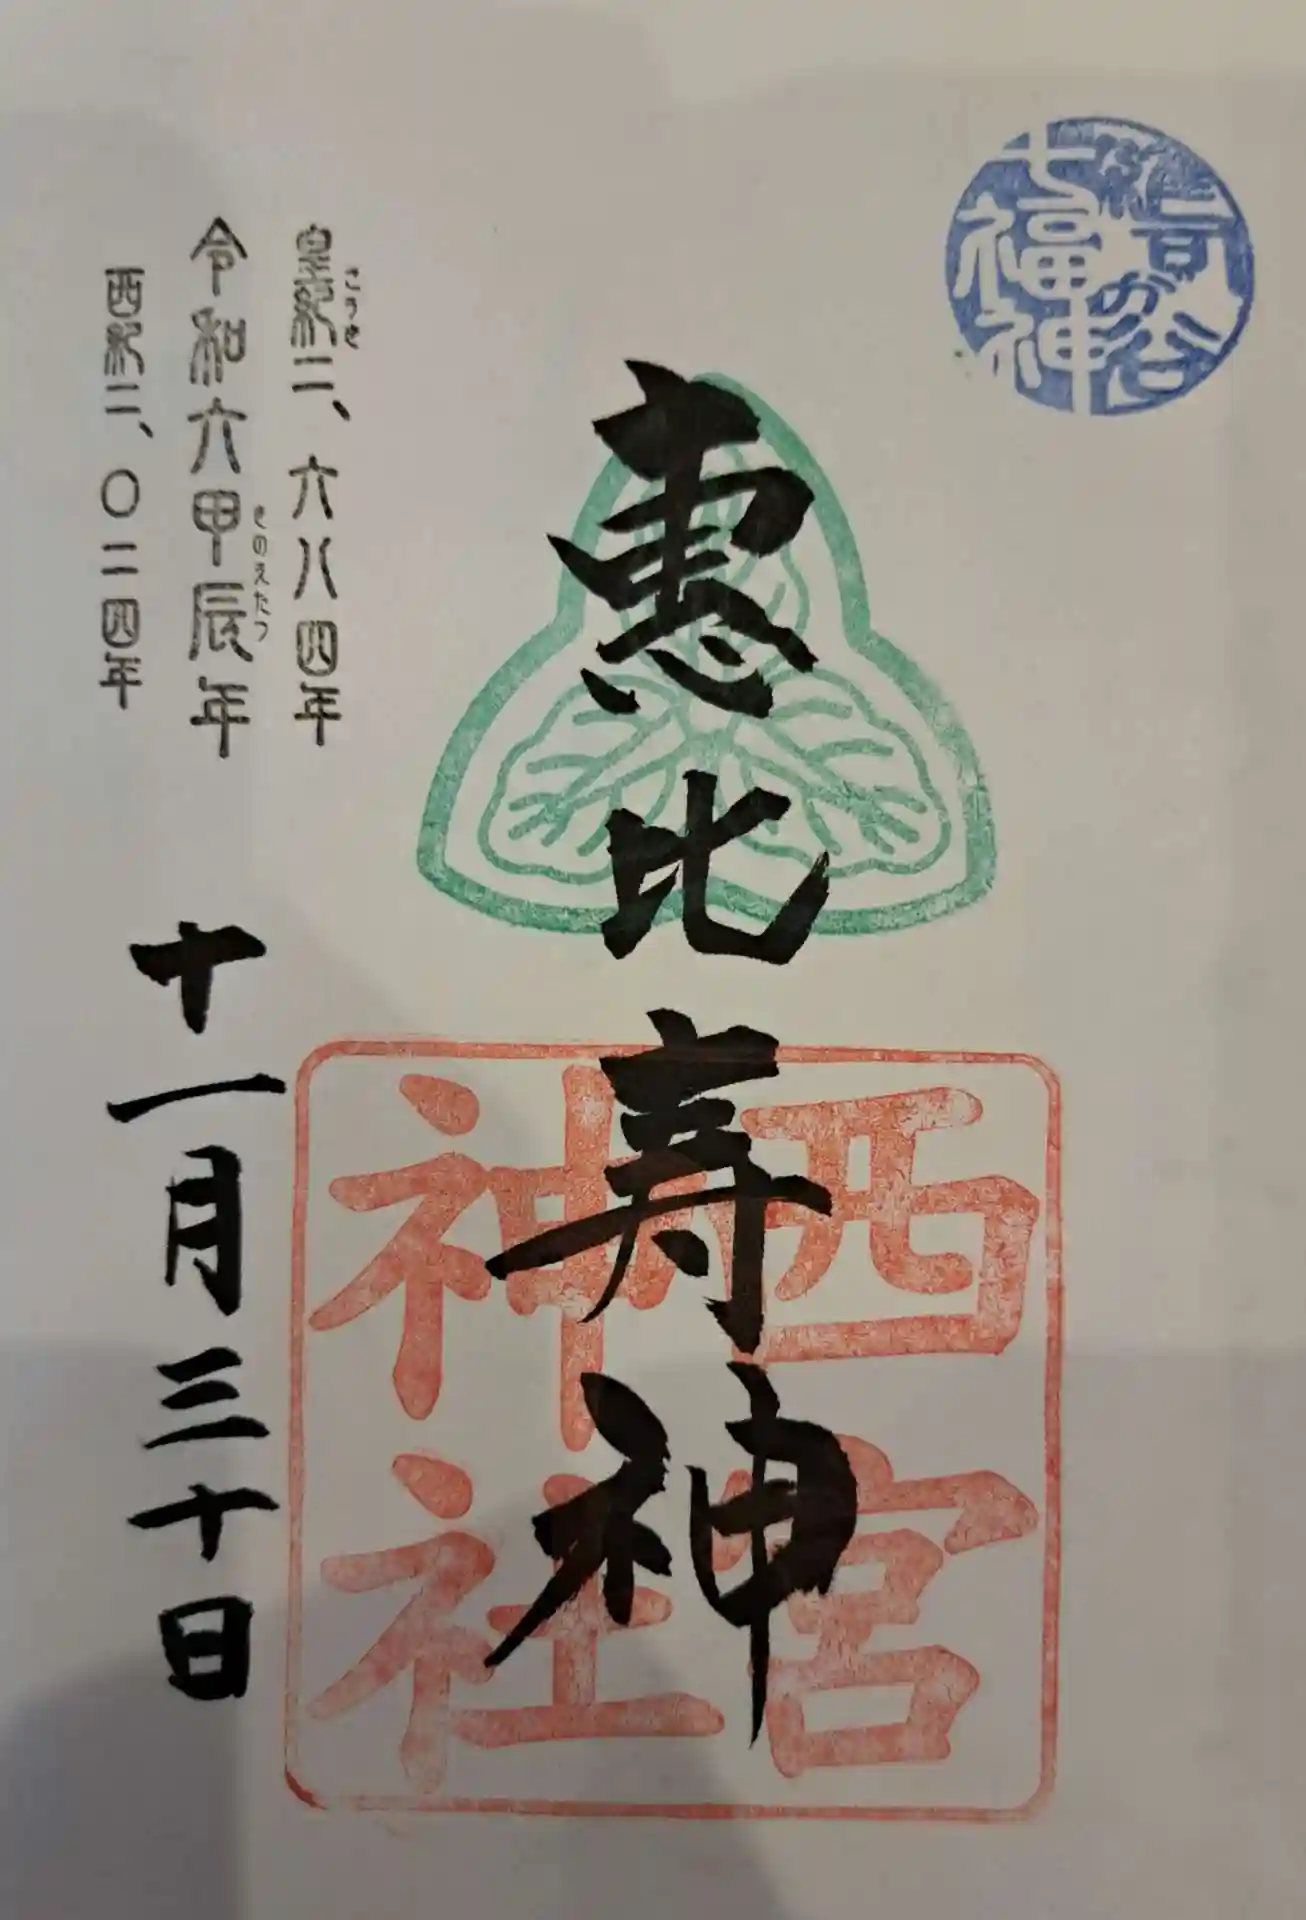 雑司が谷
七福神
恵比寿神
西宮
神社
こうき
皇紀二、六八四年
きのえたつ
令和六甲辰年
西紀二、〇二四年
十一月三十日